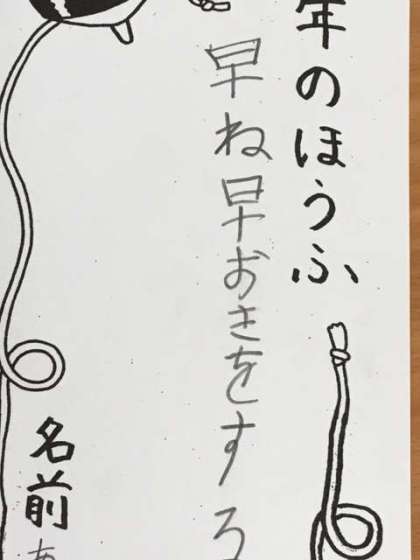 年のほうふ
早ね早おきをする
名前
あ